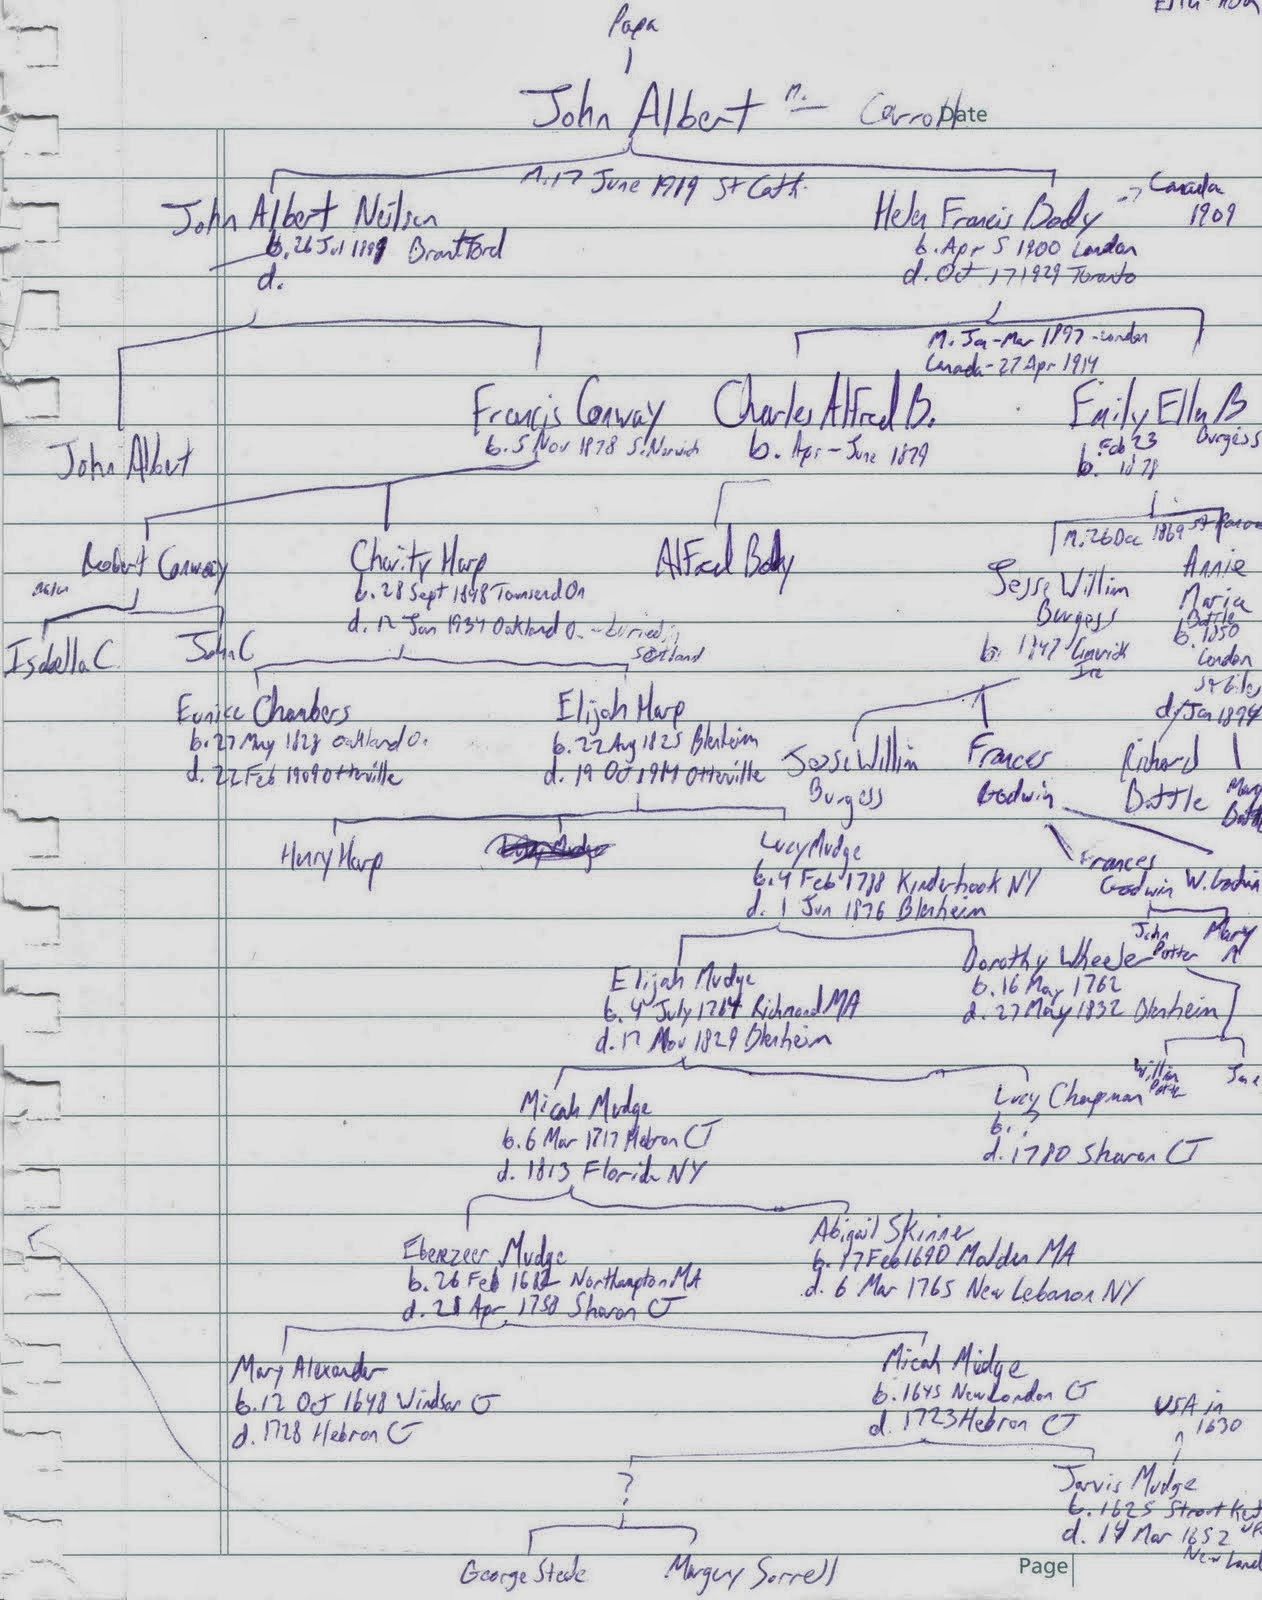 Papa
John Albert m. — Carroll
Date
m. 17 June 1919 St Cath.
John Albert Neilson
b. 26 Jul 1899 Brantford
d.
Helen Francis Body → Canada 1909
b. Apr 5 1900 London
d. Oct 17 1929 Toronto
M. Jan-Mar 1897 - London
Canada - 27 Apr 1914
John Albert
Francis Conway
b. 5 Nov 1878 S. Norwich
Charles Alfred B.
b. Apr - June 1879
Emily Ellen B
Burgess
b. Feb 23 1878
Robert Conway
Charity Harp
b. 28 Sept 1848 Townsend On
d. 12 Jan 1934 Oakland O. - buried in Scotland
Alfred Body
m. 26 Dec 1869
Jesse Willim Burgess
b. 1847 Limerick Ire
Annie Maria Battle
b. 1850 London St Giles
d. Jan 1894
Isabella C
John C
Eunice Chambers
b. 27 May 1828 Oakland O.
d. 22 Feb 1909 Otterville
Elijah Harp
b. 22 Aug 1825 Blenheim
d. 19 Oct 1914 Otterville
Jesse Willim Burgess
Frances Godwin
Richard Battle
Mary Battle
Henry Harp
Lucy Mudge
b. 4 Feb 1788 Kinderhook NY
d. 1 Jun 1876 Blenheim
Frances Godwin
W. Godwin
John Potter
Mary A
Elijah Mudge
b. 4 July 1764 Richmond MA
d. 17 Nov 1829 Blenheim
Dorothy Wheeler
b. 16 May 1762
d. 27 May 1832 Blenheim
Willim Potter
Jane
Micah Mudge
b. 6 Mar 1717 Hebron CT
d. 1813 Florida NY
Lucy Chapman
b. ?
d. 1780 Sharon CT
Ebenezeer Mudge
b. 26 Feb 1682 Northampton MA
d. 28 Apr 1758 Sharon CT
Abigail Skinner
b. 17 Feb 1690 Malden MA
d. 6 Mar 1765 New Lebanon NY
Mary Alexander
b. 12 Oct 1648 Windsor CT
d. 1728 Hebron CT
Micah Mudge
b. 1645 New London CT
d. 1723 Hebron CT
USA in 1630
?
Jarvis Mudge
b. 1625
d. 14 Mar 1652
George Steele
Margery Sorrell
Page